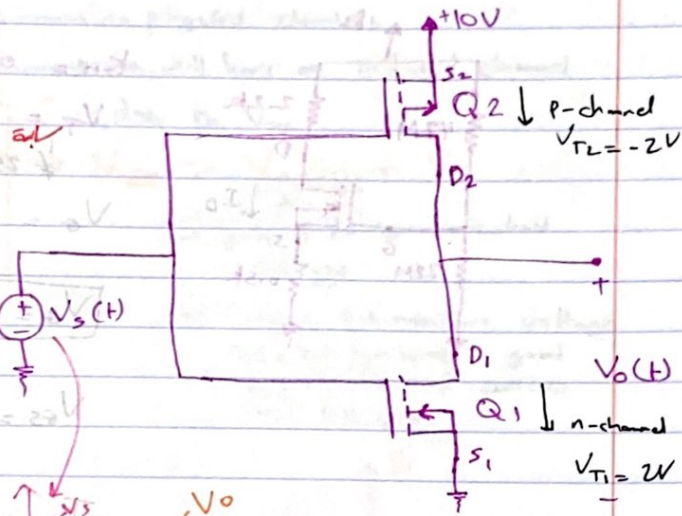 +10V
S2
Q2 ↓ P-channel
VT2 = -2V
D2
+
Vs(t)
+
-
D1
Vo(t)
Q1 ↓ n-channel
S1
VT1 = 2V
-
Vs
Vo